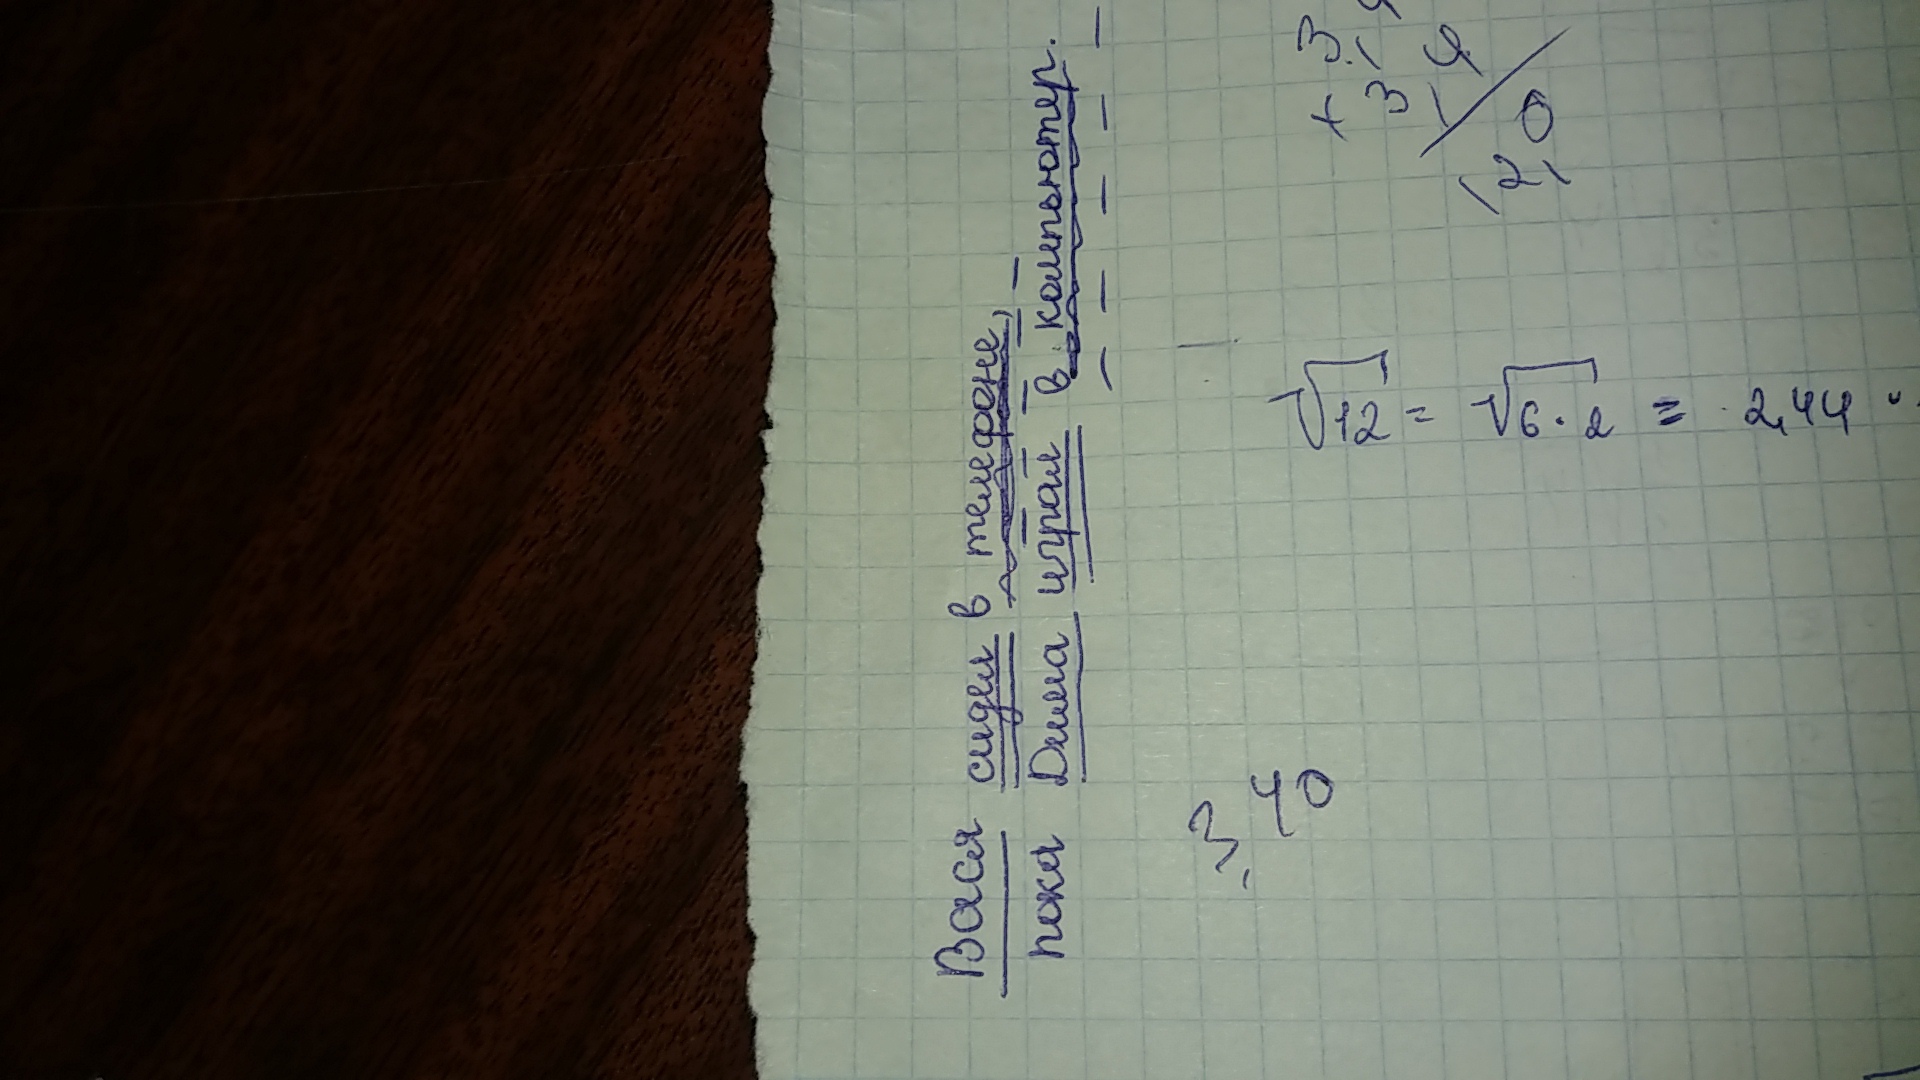 Вася сидел в телефоне,
пока Дима играл в компьютер.
3,40
√12 = √6·2 = 2,44
+3,4
12,0